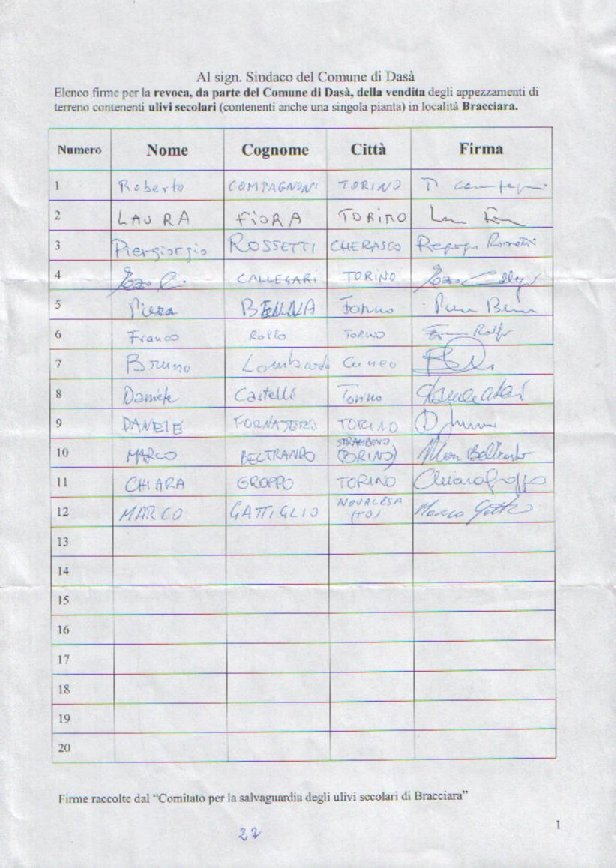 Al sign. Sindaco del Comune di Dasà
Elenco firme per la revoca, da parte del Comune di Dasà, della vendita degli appezzamenti di
terreno contenenti ulivi secolari (contenenti anche una singola pianta) in località Bracciara.
Numero Nome Cognome Città Firma
1 Roberto COMPAGNONI TORINO
2 LAURA FIORA TORINO
3 Piergiorgio ROSSETTI CHERASCO
4 CALLEGARI TORINO
5 Piera BENNA Torino
6 Franco ROLFO TORINO
7 Bruno Lombardo Cuneo
8 Daniele Castelli Torino
9 DANIELE FORNASERO TORINO
10 MARCO BELTRANDO STRAMBINO (TORINO)
11 CHIARA GROPPO TORINO Chiara Groppo
12 MARCO GATTIGLIO NOVALESA (TO) Marco
13
14
15
16
17
18
19
20
Firme raccolte dal “Comitato per la salvaguardia degli ulivi secolari di Bracciara”
1
27